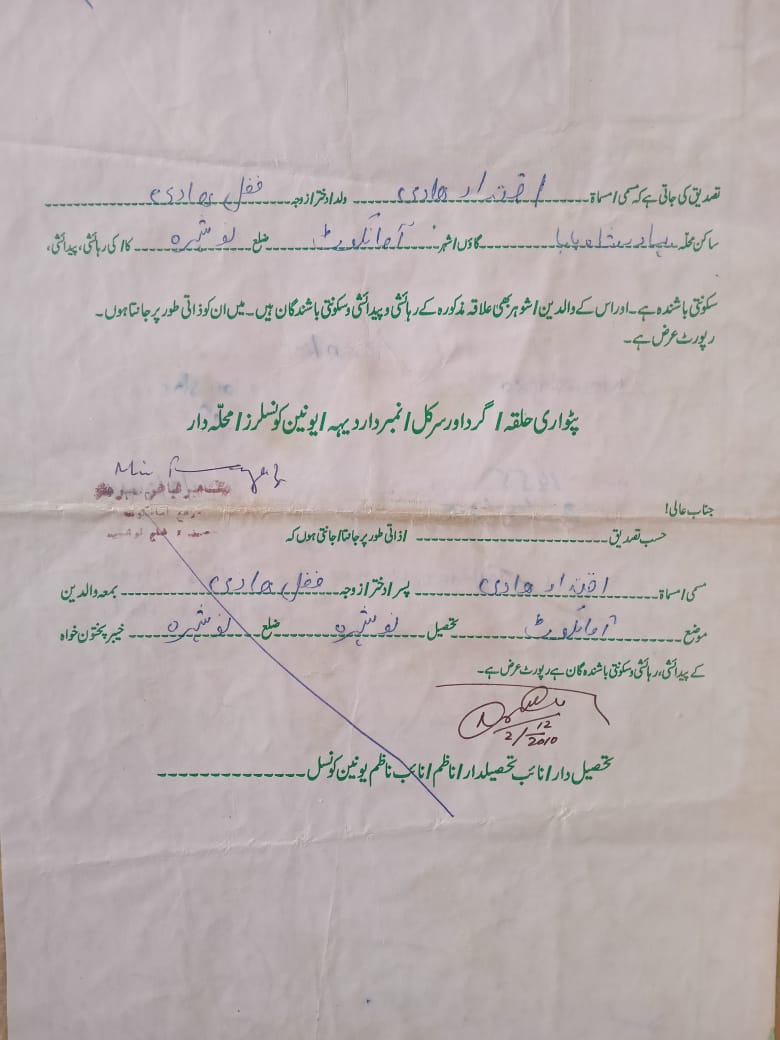 تصدیق کی جاتی ہے کہ مسمی/مسماۃ اقتدار ہادی ولد/دختر/زوجہ فضل ہادی
ساکن محلہ بہادر شاہ بابا گاؤں/شہر آمانکوٹ ضلع نوشہرہ کا/کی رہائشی، پیدائشی،
سکونتی باشندہ ہے۔ اور اس کے والدین/شوہر بھی علاقہ مذکورہ کے رہائشی و پیدائشی و سکونتی باشندگان ہیں۔ میں ان کو ذاتی طور پر جانتا ہوں۔
رپورٹ عرض ہے۔
پٹواری حلقہ/گرداور سرکل/نمبردار دیہہ/یونین کونسلرز/محلّہ دار
جناب عالی!
حسب تصدیق /ذاتی طور پر جانتا/جانتی ہوں کہ
مسمی/مسماۃ اقتدار ہادی پسر/دختر/زوجہ فضل ہادی بمعہ والدین
موضع آمانکوٹ تحصیل نوشہرہ ضلع نوشہرہ خیبر پختون خواہ
کے پیدائشی، رہائشی و سکونتی باشندہ گان ہے رپورٹ عرض ہے۔
2/12
2010
تحصیل دار/نائب تحصیلدار/ناظم/نائب ناظم یونین کونسل